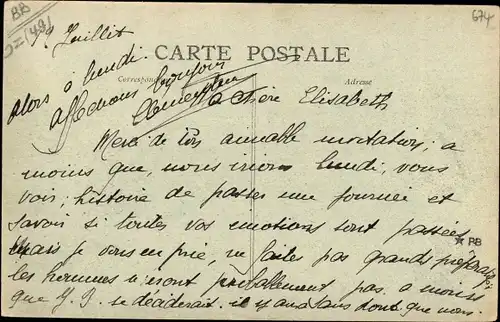 BB
674
Juillet
CARTE POSTALE
Alors à lundi.
Correspondance
Adresse
affectueux bonjour
Chère Elisabeth
Merci de ton aimable invitation, a
moins que, nous irions lundi, vous
voir; histoire de passer une journée et
savoir si toutes vos emotions sont passées
mais je vous en prie, ne faites pas grands préparatifs
BB
les hommes n'iront probablement pas a moins
que se déciderait. il y aura sans dont que nous.